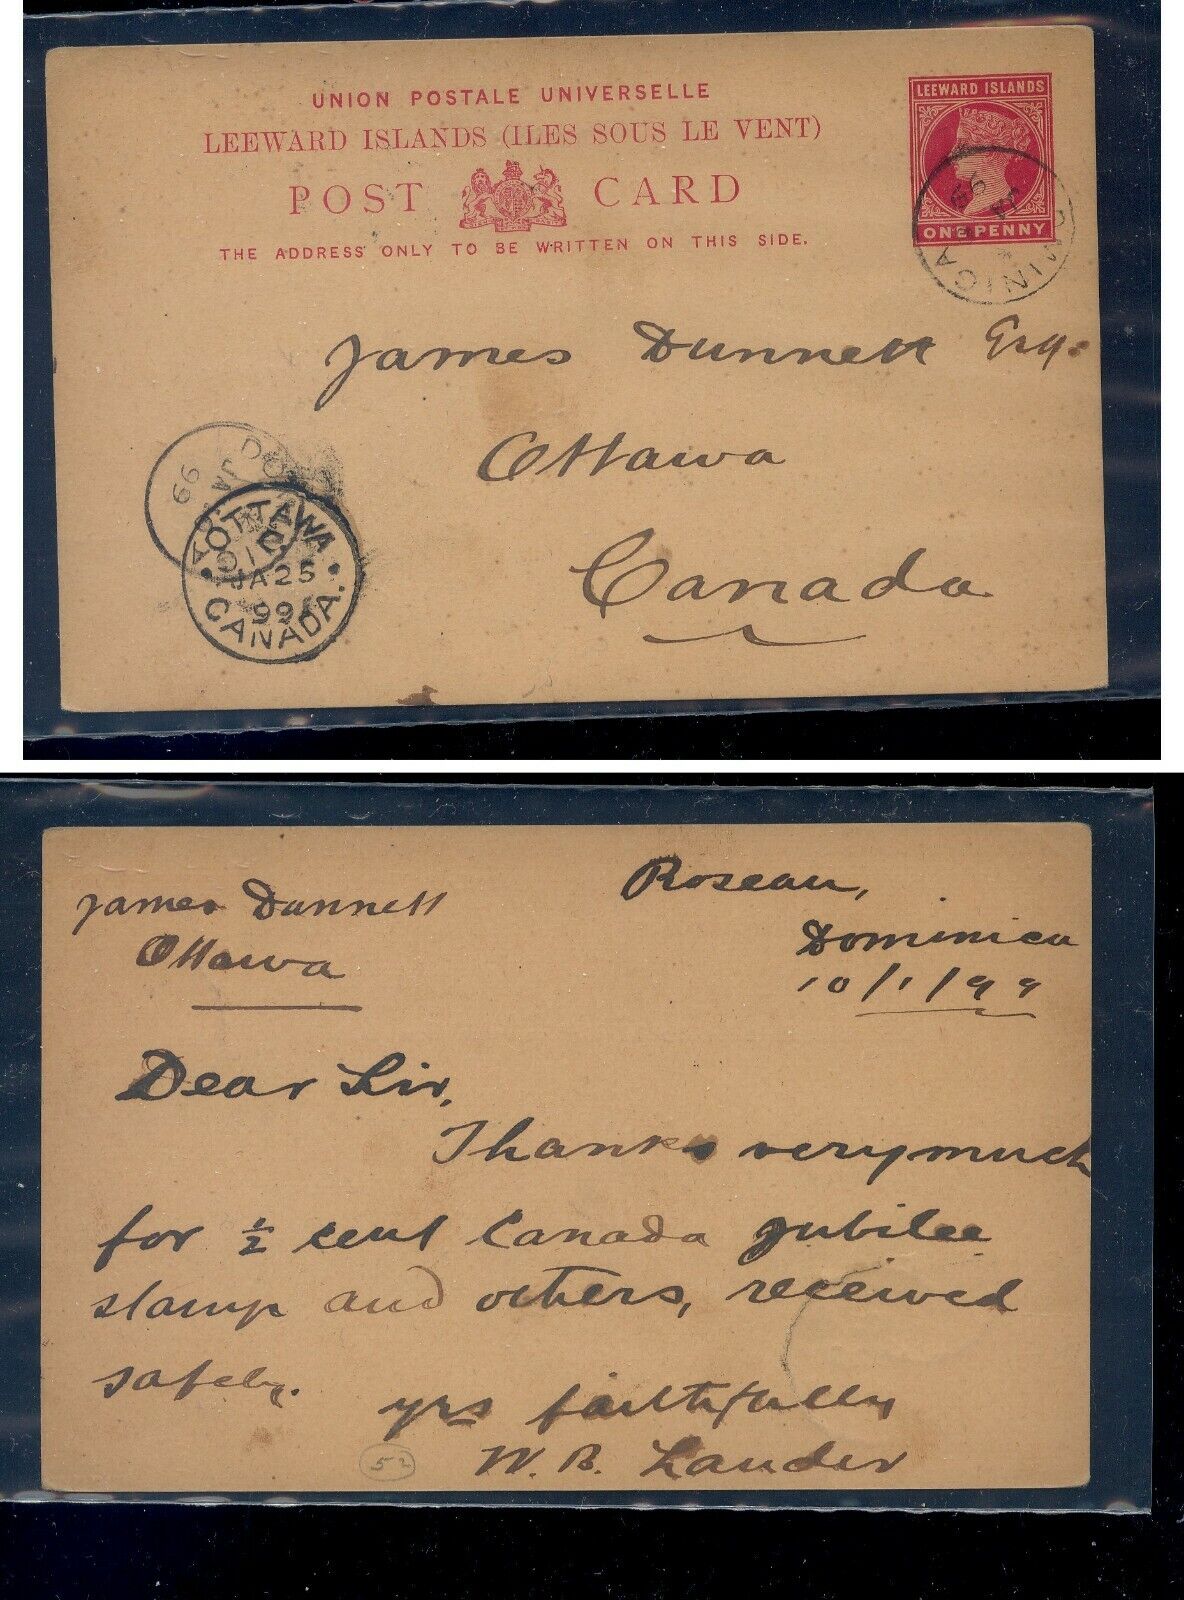 UNION POSTALE UNIVERSELLE
LEEWARD ISLANDS (ILES SOUS LE VENT)
POST CARD
THE ADDRESS ONLY TO BE WRITTEN ON THIS SIDE.
LEEWARD ISLANDS
ONE PENNY
99
JA
MINICA
James Dunnett Esq.
Ottawa
Canada
99
JA
OTTAWA
JA 25
99
CANADA.
James Dunnett
Ottawa
Roseau,
Dominica
10/1/99
Dear Sir,
Thanks very much
for ½ cent Canada Jubilee
stamp and others, received
safely.
yrs faithfully
W. B. Lauder
52